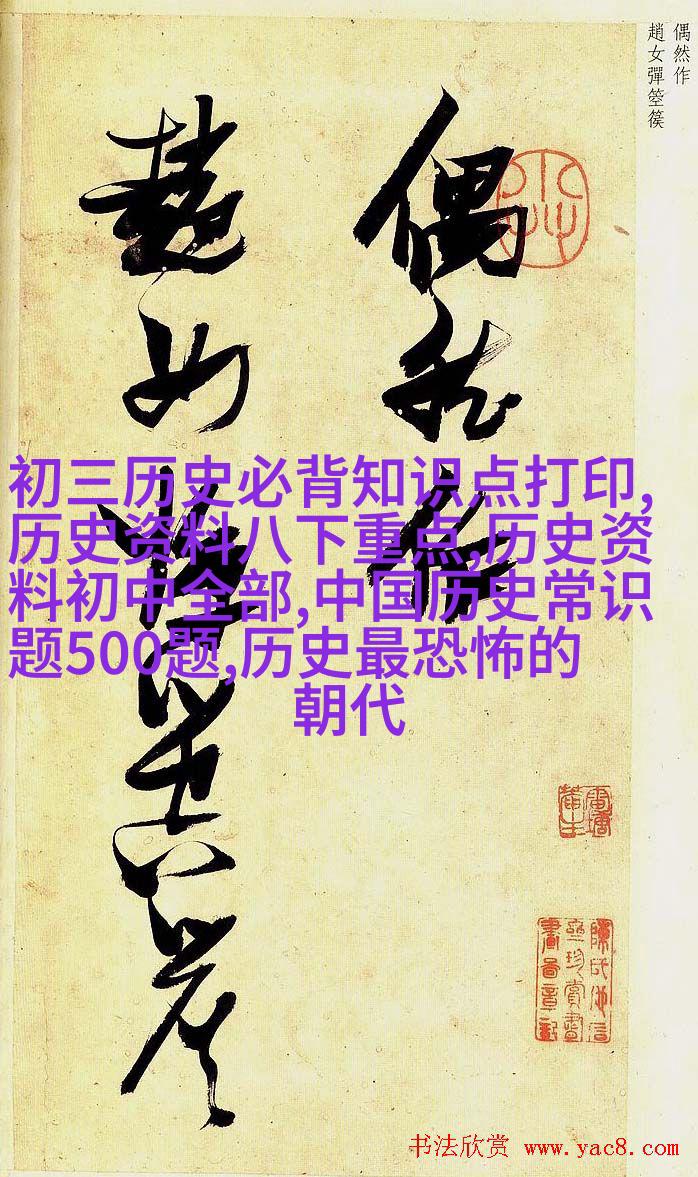 偶然作
趙女彈箜篌
偶然作
趙女彈箜篌
初三历史必背知识点打印,
历史资料八下重点,历史资
料初中全部,中国历史常识
题500题,历史最恐怖的
朝代
书法欣赏 www.yac8.com